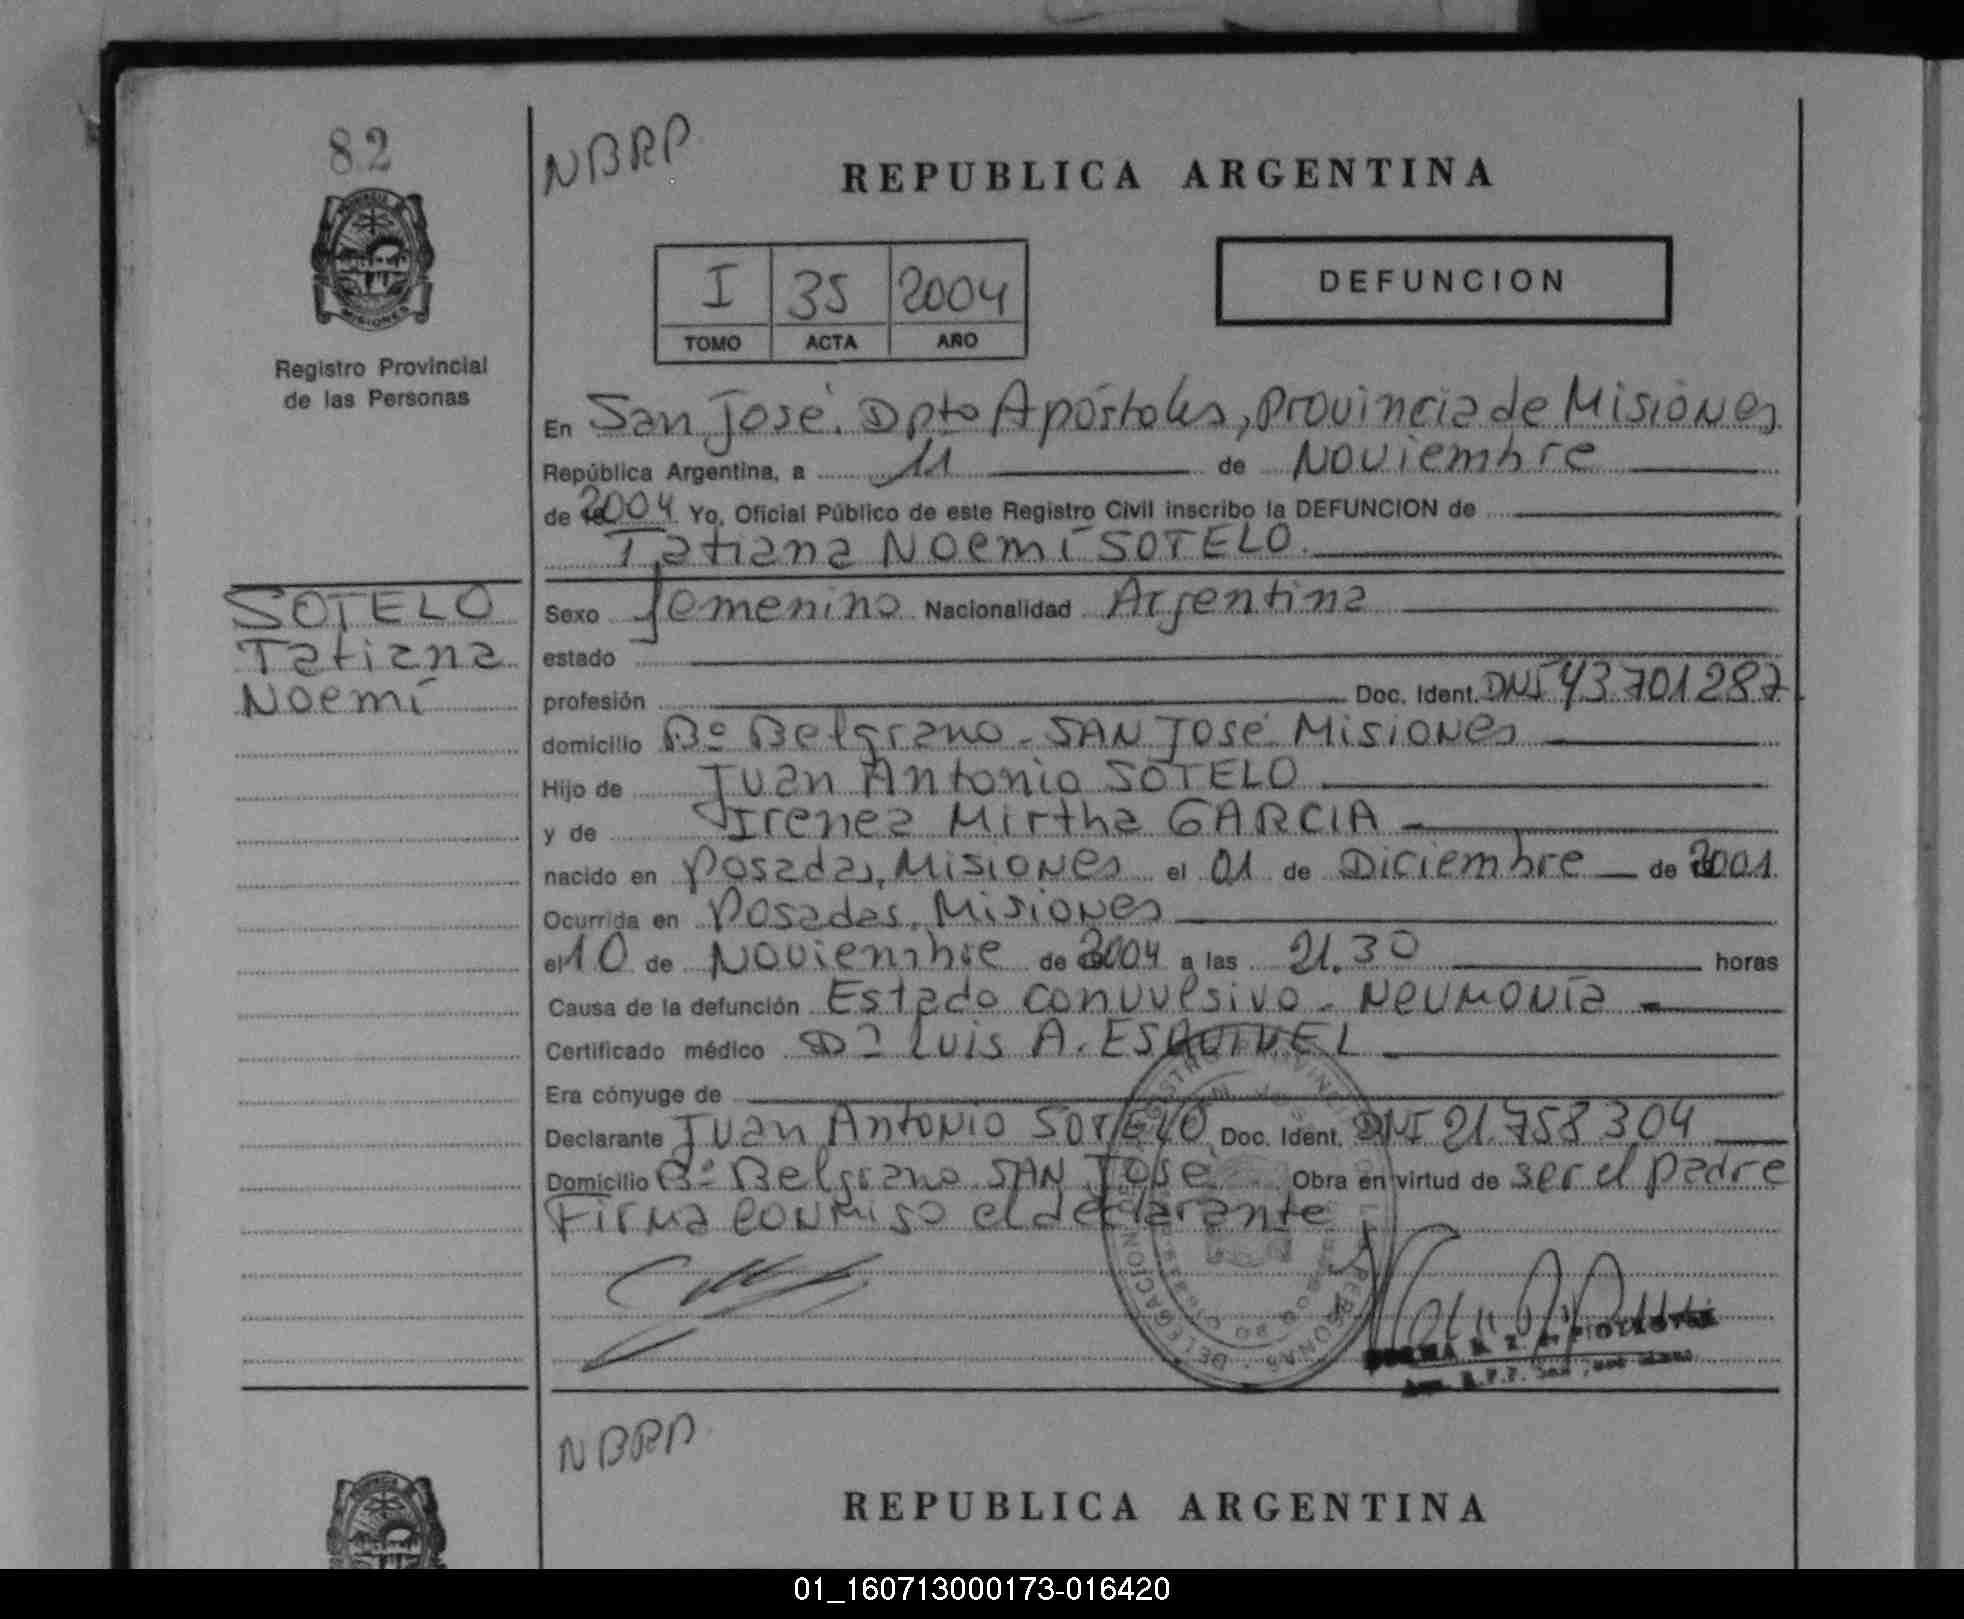 82
NBRP
REPUBLICA ARGENTINA
I 35 2004
TOMO ACTA AÑO
DEFUNCION
MISIONES
Registro Provincial
de las Personas
En San José. Dpto Apóstoles, Provincia de Misiones
República Argentina, a 11 de Noviembre
de 2004 Yo, Oficial Público de este Registro Civil inscribo la DEFUNCION de
Tatiana Noemí SOTELO.
SOTELO
Tatiana
Noemí
Sexo femenino Nacionalidad Argentina
estado
profesión Doc. Ident. DNI 43.701287
domicilio Bº Belgrano - SAN José Misiones
Hijo de Juan Antonio SOTELO
y de Irenea Mirtha GARCIA
nacido en Posadas, Misiones el 01 de Diciembre de 2001.
Ocurrida en Posadas, Misiones
el 10 de Noviembre de 2004 a las 21.30 horas
Causa de la defunción Estado convulsivo - Neumonía
Certificado médico Dr Luis A. ESQUIVEL
Era cónyuge de
Declarante Juan Antonio SOTELO Doc. Ident. DNI 21.758304
Domicilio Bº Belgrano SAN José Obra en virtud de ser el padre
Firma conmigo el declarante
NBRP
REPUBLICA ARGENTINA
01_160713000173-016420